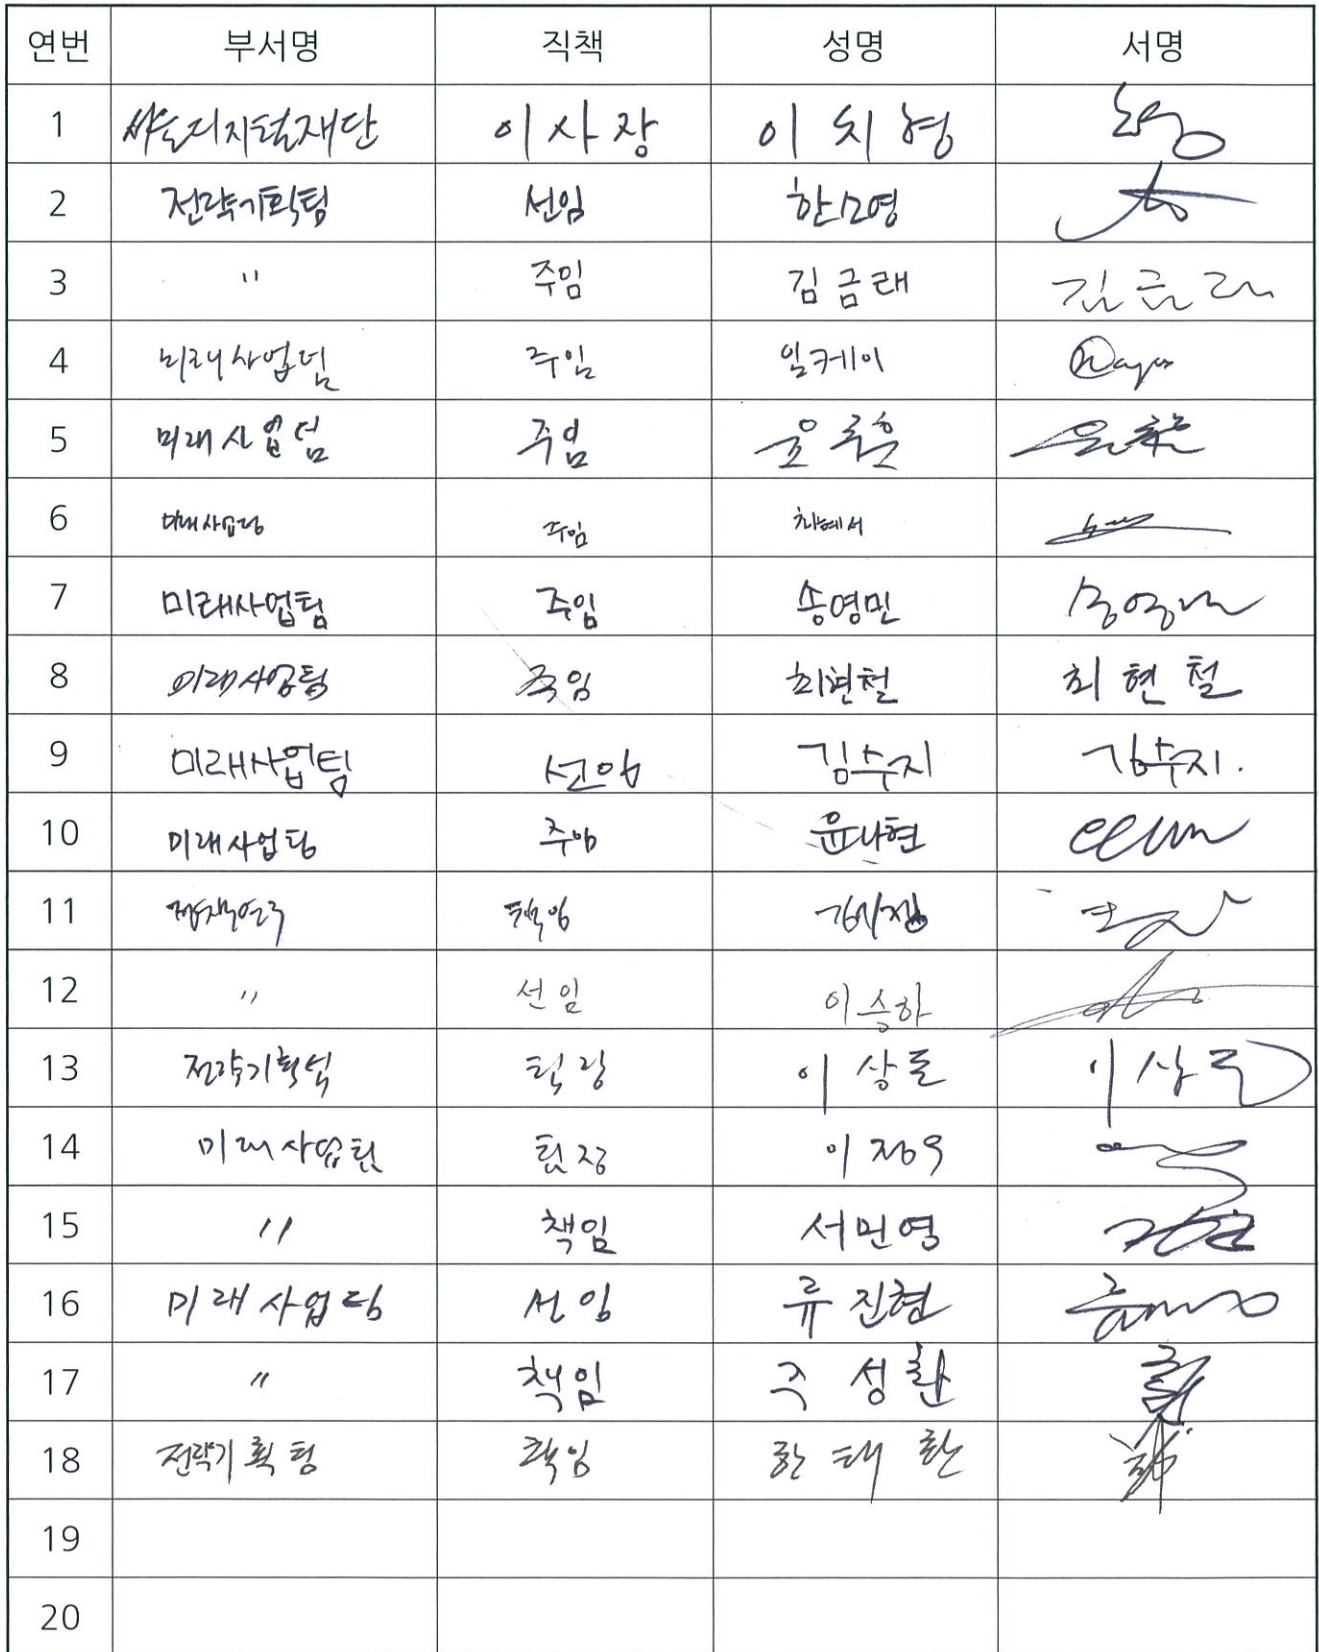 연번 부서명 직책 성명 서명
1 서울디지털재단 이사장 이치형
2 전략기획팀 선임 한소영
3 " 주임 김금래 김금래
4 미래사업팀 주임 임케이
5 미래사업팀 주임 윤루훈
6 미래사업팀 주임 최혜서
7 미래사업팀 주임 송영민 송영민
8 미래사업팀 주임 최현철 최현철
9 미래사업팀 선임 김수지 김수지.
10 미래사업팀 주임 윤나현
11 정책연구 책임
12 " 선임 이승하
13 전략기획팀 팀장 이상돈 이상돈
14 미래사업팀 팀장 이정우
15 " 책임 서민영
16 미래사업팀 선임 류진현
17 " 책임 주성환
18 전략기획팀 책임 한태환
19
20